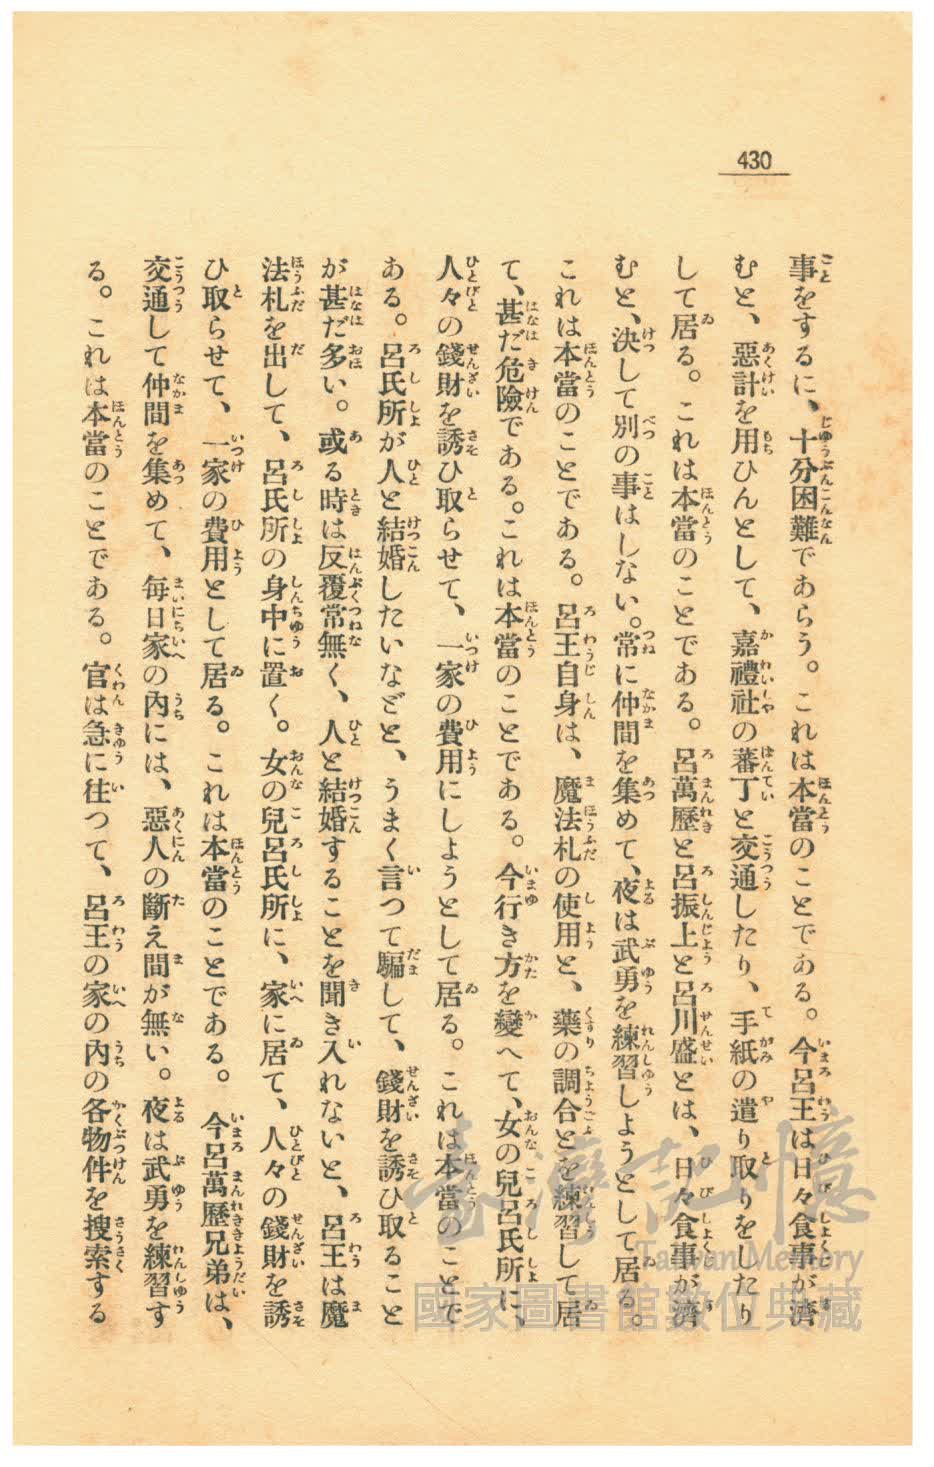 430
事をするに、十分困難であらう。これは本當のことである。今呂王は日々食事が濟
むと、惡計を用ひんとして、嘉禮社の蕃丁と交通したり、手紙の遣り取りをしたり
して居る。これは本當のことである。呂萬歷と呂振上と呂川盛とは、日々食事が濟
むと、決して別の事はしない。常に仲間を集めて、夜は武勇を練習しようとして居る。
これは本當のことである。呂王自身は、魔法札の使用と、藥の調合とを練習して居
て、甚だ危險である。これは本當のことである。今行き方を變へて、女の兒呂氏所に、
人々の錢財を誘ひ取らせて、一家の費用にしようとして居る。これは本當のことで
ある。呂氏所が人と結婚したいなどと、うまく言つて騙して、錢財を誘ひ取ること
が甚だ多い。或る時は反覆常無く、人と結婚することを聞き入れないと、呂王は魔
法札を出して、呂氏所の身中に置く。女の兒呂氏所に、家に居て、人々の錢財を誘
ひ取らせて、一家の費用として居る。これは本當のことである。今呂萬歷兄弟は、
交通して仲間を集めて、毎日家の內には、惡人の斷え間が無い。夜は武勇を練習す
る。これは本當のことである。官は急に往つて、呂王の家の內の各物件を搜索する
臺灣記憶
Taiwan Memory
國家圖書館數位典藏